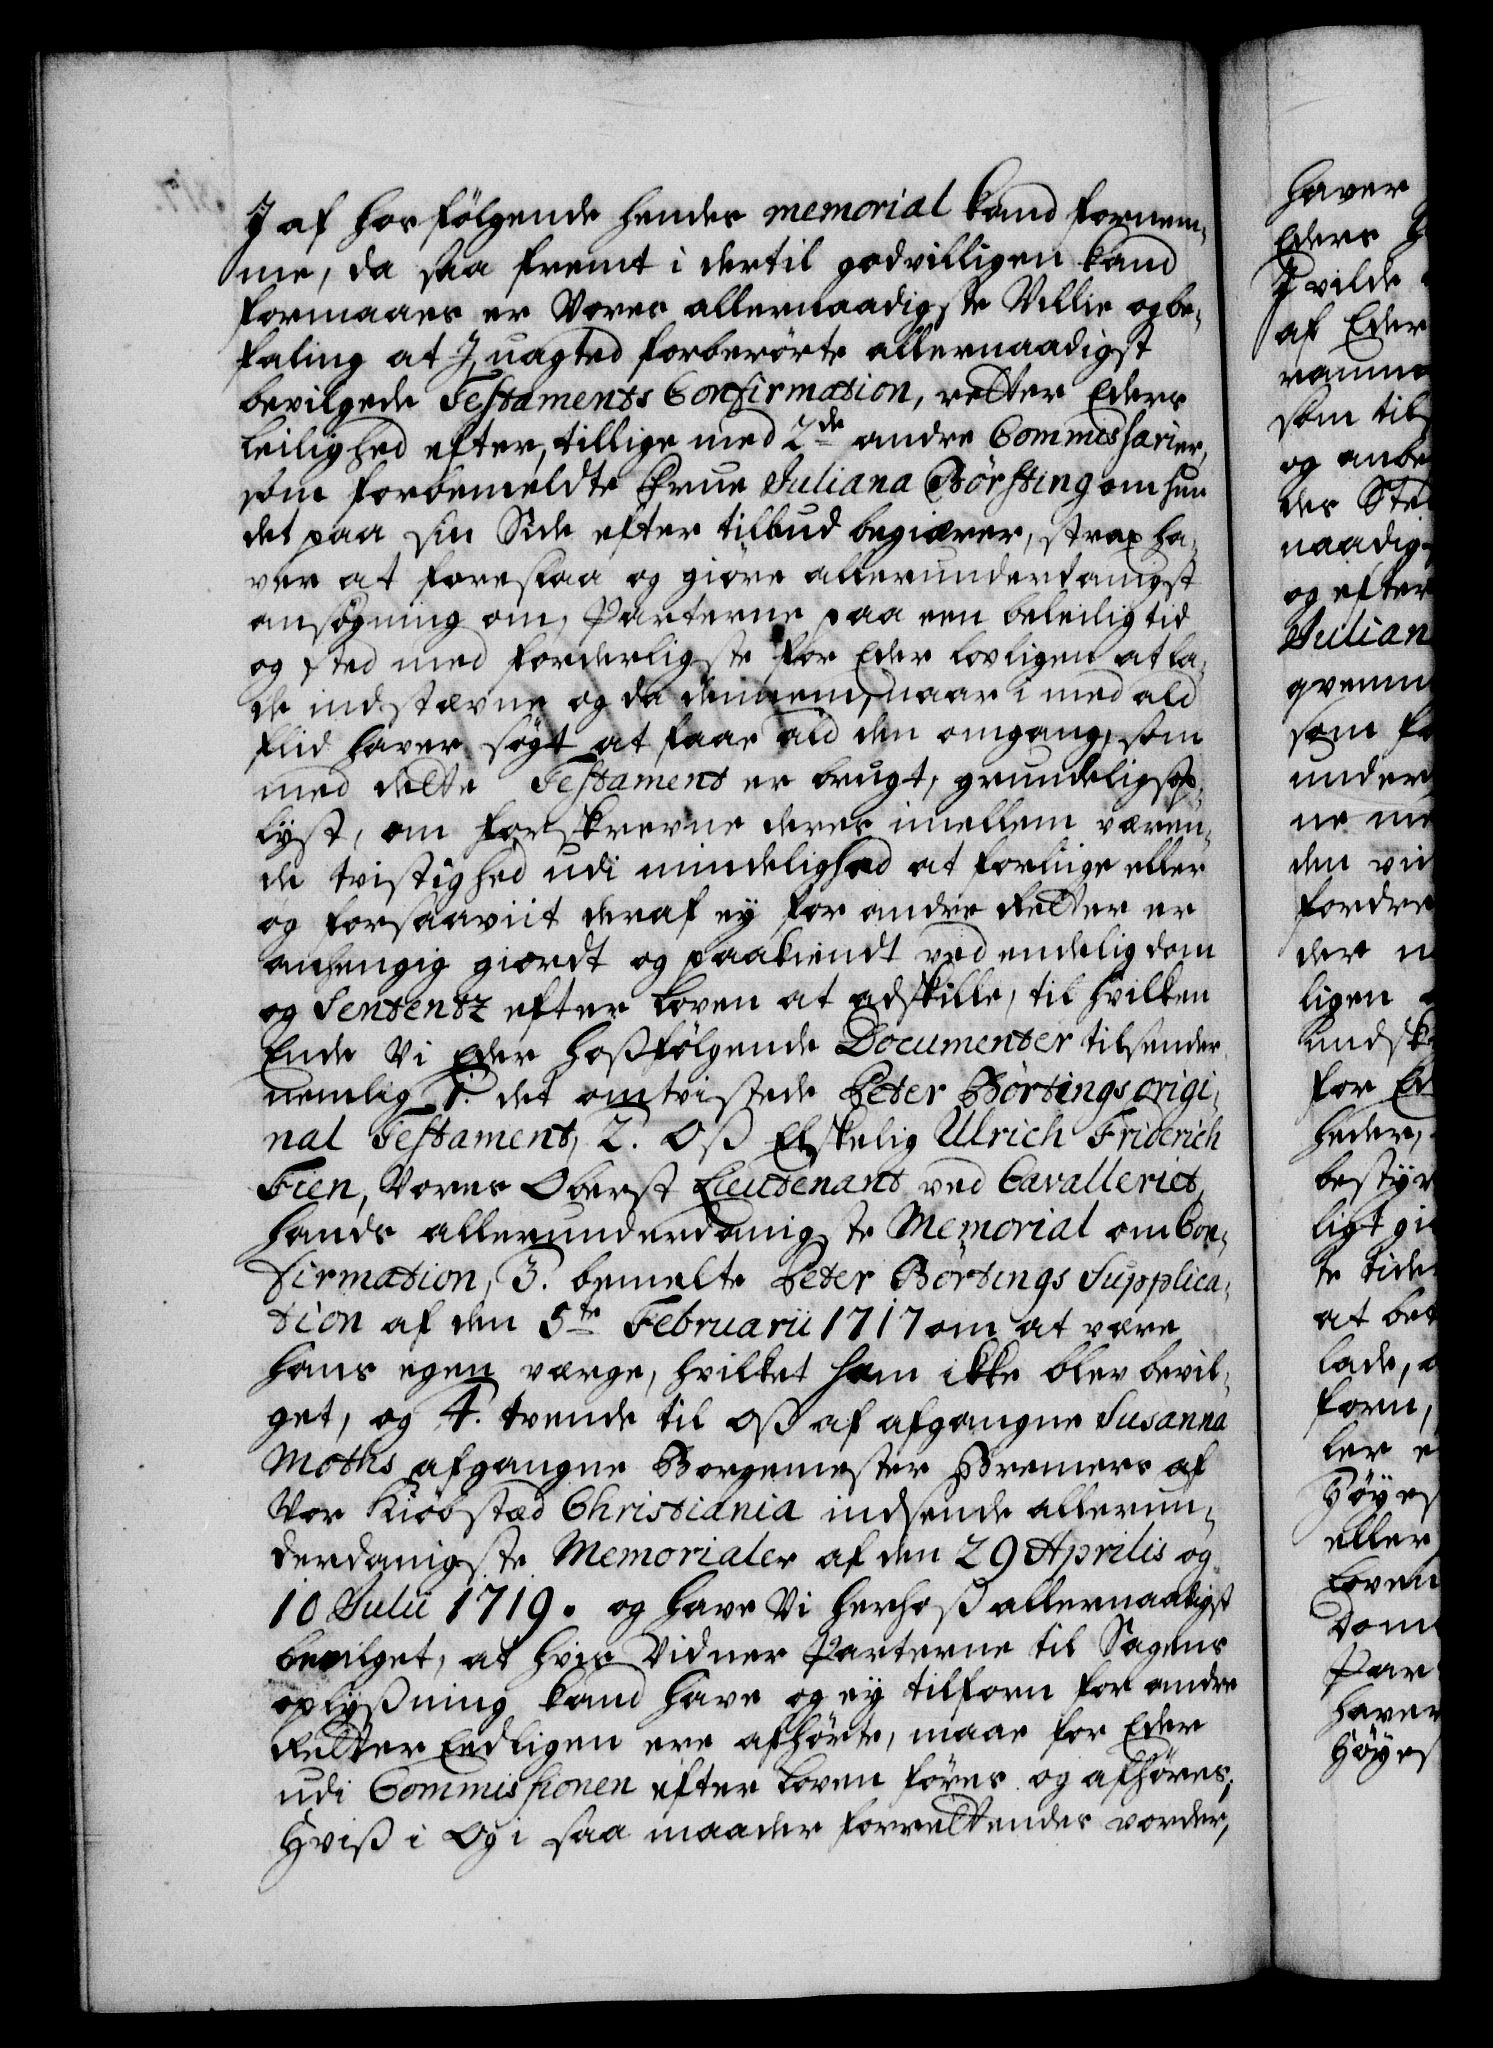 I af hosfölgende hendes memorial kand fornem-
me, da saa fremt i dertil godvilligen kand
formaaes er Vores allernaadigste Villie og be-
faling at I, uagted forberörte allernaadigst
bevilgede Testaments Confirmation, retter Eders
leilighed efter, tillige med 2de andre Commissarier,
som forbemeldte Frue Juliana Börsting om hun
det paa sin Side efter tilbud begiærer, strax ha-
ver at foreslaa og giöre allerunderdanigst
ansögning om, Parterne paa een beleilig tid
og sted med forderligste for Eder lovligen at la-
de indstævne og da dennem, naar i med ald
flid haver sögt at faae ald den omgang, som
med dette Testament er brugt, grundeligst op-
lyst, om forskrevne deres imellem væren-
de tvistighed udi mindelighed at forliige eller
og forsaaviit deraf ej for andre Retter er
anhengig giordt og paakiendt ved endelig dom
og Sententz efter Loven at adskille, til hvilken
Ende Vi Eder hoßfölgende Documenter tilsender
nemlig 1. det omtvistede Peter Börtings origi-
nal Testament, 2. Oß Elskelig Ulrich Friderich
Fien, Vores Oberst Lieutenant ved Cavalleriet,
hands allerunderdanigste Memorial om Con-
firmation, 3. bemelte Peter Börtings Supplica-
tion af den 5te Februarii 1717 om at være
hans egen værge, hvilket ham ikke blev bevil-
get, og 4. tvende til oß af afgangne Susanna
Moths afgangne Borgemester Bremers af
Vor Kiöbstæd Christiania indsende allerun-
derdanigste Memorialer af den 29 Aprilis og
10 Julii 1719. og have Vi herhoß allernaadigst
bevilget, at hvis Vidner Parterne til Sagens
oplyßning kand have og ej tilforn for andre
Retter Eedligen ere afhörte, maae for Eder
udi Commissionen efter Loven föres og afhöres;
Hviß i og i saa maader forrettendes vorder,
haver
Eders
I vilde
af Eder
som til
og anbe
des Sted
naadig-
og efter
Julian
qvemm
som fo
under
ne me
den vi
fordre
der
ligen
indsk
for Ed
heder,
bestyr
ligt gi
te tide
at bet
lade,
forn,
ler e
Höyes
eller
Loven
Dom
Par
haver
Höyes